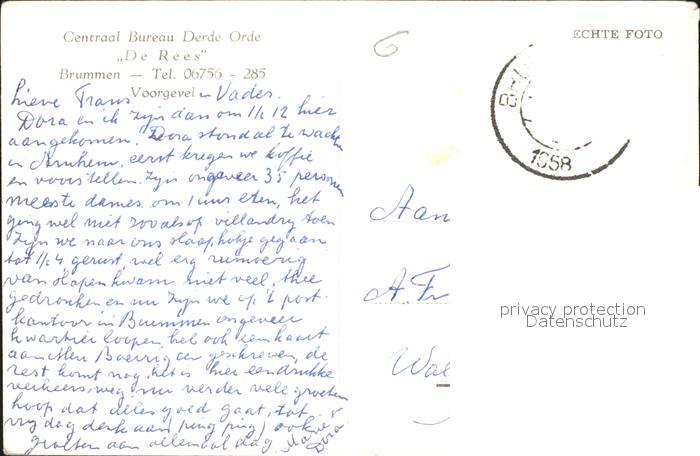 Centraal Bureau Derde Orde
„De Rees"
Brummen — Tel. 06756 - 285
Voorgevel
ECHTE FOTO
6
1958
Lieve Frans en Vader.
Dora en ik zijn dan om 1/2 12 hier
aangekomen. Dora stond al te wachten
in Arnhem, eerst kregen we koffie
en voorstellen. Zijn ongeveer 35 personen
meeste dames. om 1 uur eten, het
ging wel niet zooals op villandry toen
zijn we naar ons slaaphokje gegaan
tot 1/2 4 gerust, wel erg rumoerig
van slapen kwam niet veel, thee
gedronken en nu zijn we op 't post-
kantoor in Brummen ongeveer
kwartier loopen, heb ook een kaart
aan Mevr geschreven, de
rest komt nog, het is hier een drukke
verkeersweg, nu verder vele groeten
hoop dat alles goed gaat, tot
vrijdag denk aan (ping ping) ook
groeten aan allemaal dag
Aan
A. Fr
Wal
privacy protection
Datenschutz